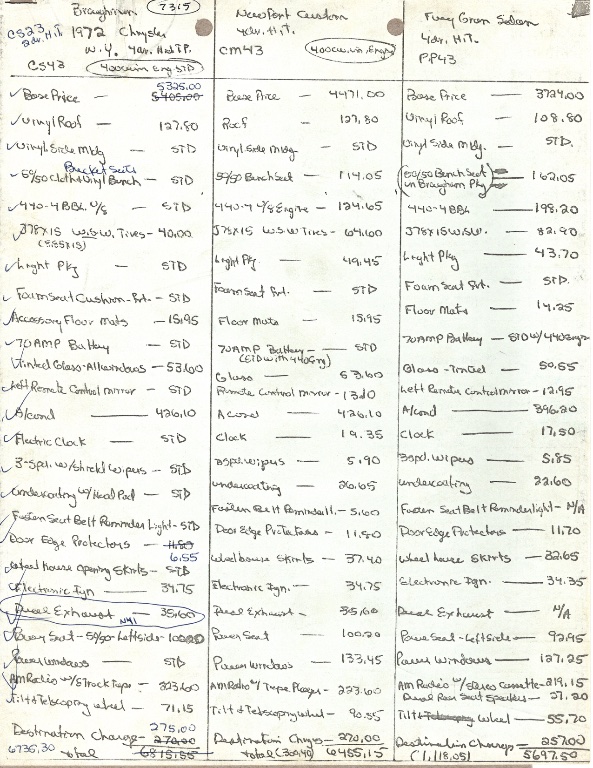 Braughman 7315
CS23 2dr. H.T. 1972 Chrysler
N.Y. 4dr. Hd TP.
CS43 400cu.in Eng STD
$325.00
✓Base Price — 5405.00
✓Vinyl Roof — 127.80
✓Vinyl Side Mldg — STD
Bucket Seats
✓50/50 Cloth & Vinyl Bench — STD
✓440-4 BBL. — STD
✓J78x15 W.S.W. Tires - 40.00
(8.85X15)
✓Light Pkg — STD
✓Foam Seat Cushion - Frt. - STD
✓Accessory Floor Mats — 15.95
✓70 AMP Battery — STD
✓Tinted Glass - All windows - 53.60
✓Left Remote Control mirror - STD
✓A/cond — 426.10
✓Electric Clock — STD
✓3-Spd. w/shield Wipers - STD
✓Undercoating w/Hood Pad - STD
✓Fasten Seat Belt Reminder Light - STD
✓Door Edge Protectors — 11.80
6.55
✓Wheel house opening Skirts - STD
✓Electronic Ign — 34.75
✓Dual Exhaust — 35.60
N41
✓Power Seat - 50/50 - Left side - 100.20
✓Power windows — STD
✓AM Radio w/STrack Tape - 223.60
✓Tilt & Telescoping wheel - 71.15
275.00
Destination Charge - 270.00
6736.30 total 6815.55
Newport Custom
4dr. H.T.
CM43 400cu.in. Engr
Base Price — 4471.00
Roof — 127.80
Vinyl Side Mldg — STD
50/50 Bench Seat — 114.05
440-4 Engine - 124.65
J78x15 W.S.W Tires - 64.60
Light Pkg. — 49.45
Foam Seat Frt. - STD
Floor Mats — 15.95
70 AMP Battery — STD
(STD with 440 Eng)
Glass — 53.60
Remote Control mirror - 13.20
A Cond — 426.10
Clock — 19.35
3 Spd. Wipers - 5.90
Undercoating — 26.65
Fasten Belt Reminder Lt. - 5.60
Door Edge Protectors - 11.80
Wheelhouse Skirts - 37.40
Electronic Ign. — 34.75
Dual Exhaust - 35.60
Power Seat — 100.20
Power Windows — 133.45
AM Radio w/ Tape Player - 223.60
Tilt & Telescoping wheel - 90.55
Destination Chrgs - 270.00
total 6455.15
Fury Gran Sedan
4dr. H.T.
PP43
Base Price — 3724.00
Vinyl Roof — 108.80
Vinyl Side Mldg. — STD.
(50/50 Bench Seat
in Braugham Pkg) — 162.05
440-4 BBL — 198.20
J78x15 W.S.W. — 82.90
Light Pkg — 43.70
Foam Seat Frt. — STD.
Floor Mats — 14.25
70 AMP Battery - STD w/440 Engr
Glass - Tinted — 50.55
Left Remote Control mirror - 12.95
A/cond — 396.20
Clock — 17.50
3 Spd. Wipers — 5.85
Undercoating — 22.60
Fasten Seat Belt Reminder light - N/A
Door Edge Protectors — 11.70
Wheel house Skirts — 32.65
Electronic Ign. — 34.35
Dual Exhaust — N/A
Power Seat - Left side — 92.95
Power Windows — 127.25
AM Radio w/Stereo Cassette - 219.15
Dual Rear Seat Speakers - 27.20
Tilt Telescoping Wheel — 55.70
Destination Charge — 257.00
(1,118.05) 5697.50